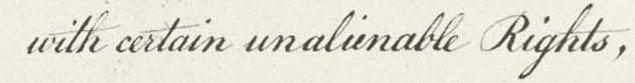 with certain unalienable Rights,